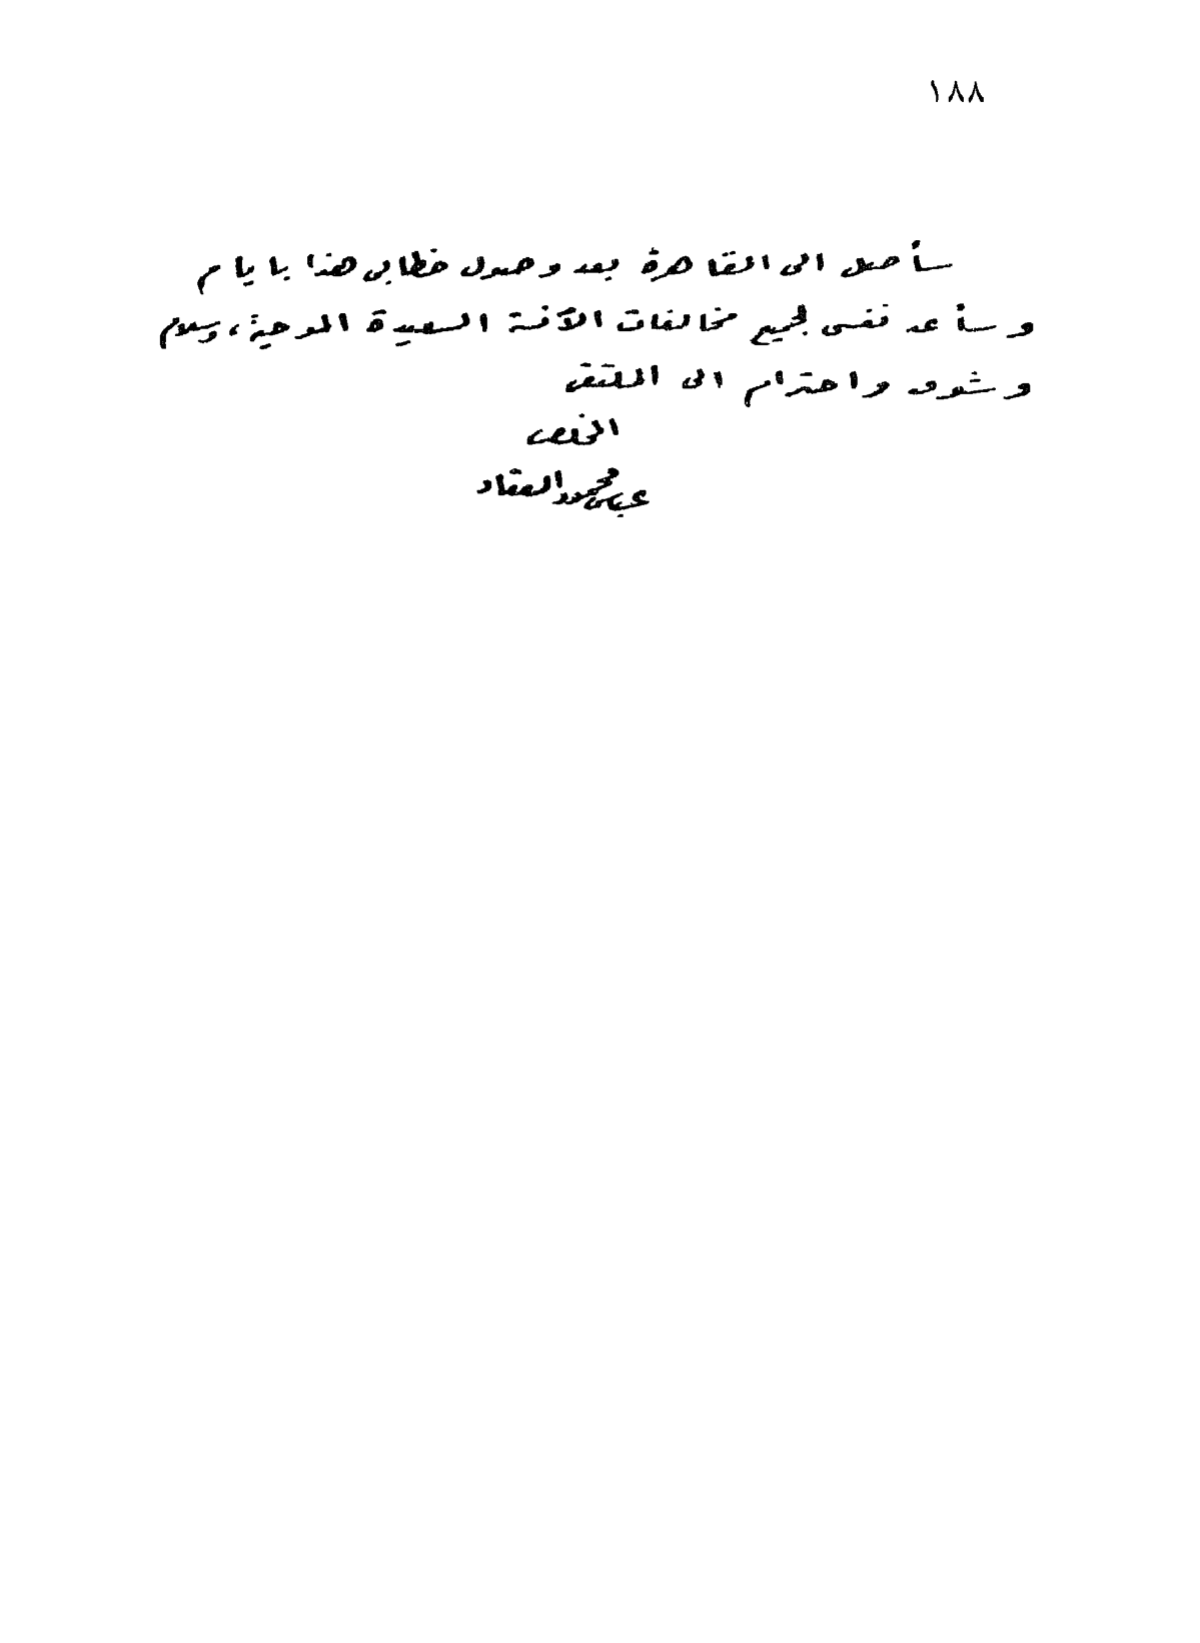 ١٨٨
سأصل الى القاهرة بعد وصول خطابى هذا بايام
وسأعد نفسى لجميع مخالفات الآنسة السعيدة الموحية، وسلام
وشوق واحترام الى الملتقى
المخلص
عباس محمود العقاد